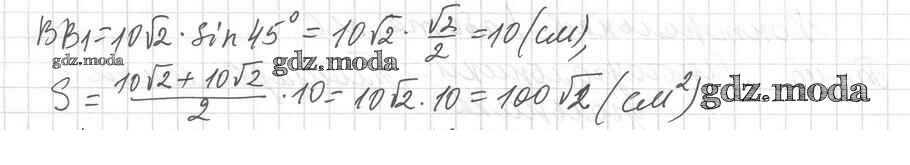 BB₁ = 10√2 · sin 45° = 10√2 · √2/2 = 10 (см),
gdz.moda gdz.moda
S = (10√2 + 10√2)/2 · 10 = 10√2 · 10 = 100√2 (см²) gdz.moda